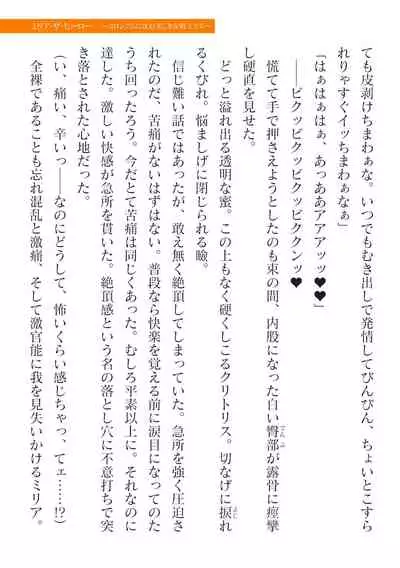 ミリア・ザ・ヒーロー
ても皮剥けちまわぁな。いつでもむき出しで発情してびんびん、ちょいとこすら
れりゃすぐイッちまわぁなぁ」
「はぁはぁはぁ、あっああアアアッッ♥♥」
――ビクッビクッビクッビククンッ♥
慌てて手で押さえようとしたのも束の間、内股になった白い臀部が露骨に痙攣
でんぶ
し硬直を見せた。
どっと溢れ出る透明な蜜。この上もなく硬くしこるクリトリス。切なげに捩れ
よじ
るくびれ。悩ましげに閉じられる瞼。
信じ難い話ではあったが、敢え無く絶頂してしまっていた。急所を強く圧迫さ
れたのだ、苦痛がないはずはない。普段なら快楽を覚える前に涙目になってのた
うち回ったろう。今だとて苦痛は同じくあった。むしろ平素以上に。それなのに
達した。激しい快感が急所を貫いた。絶頂感という名の落とし穴に不意打ちで突
き落とされた心地だった。
（い、痛い、辛いっ――なのにどうして、怖いくらい感じちゃっ、てェ……!?）
全裸であることも忘れ混乱と激痛、そして激官能に我を見失いかけるミリア。